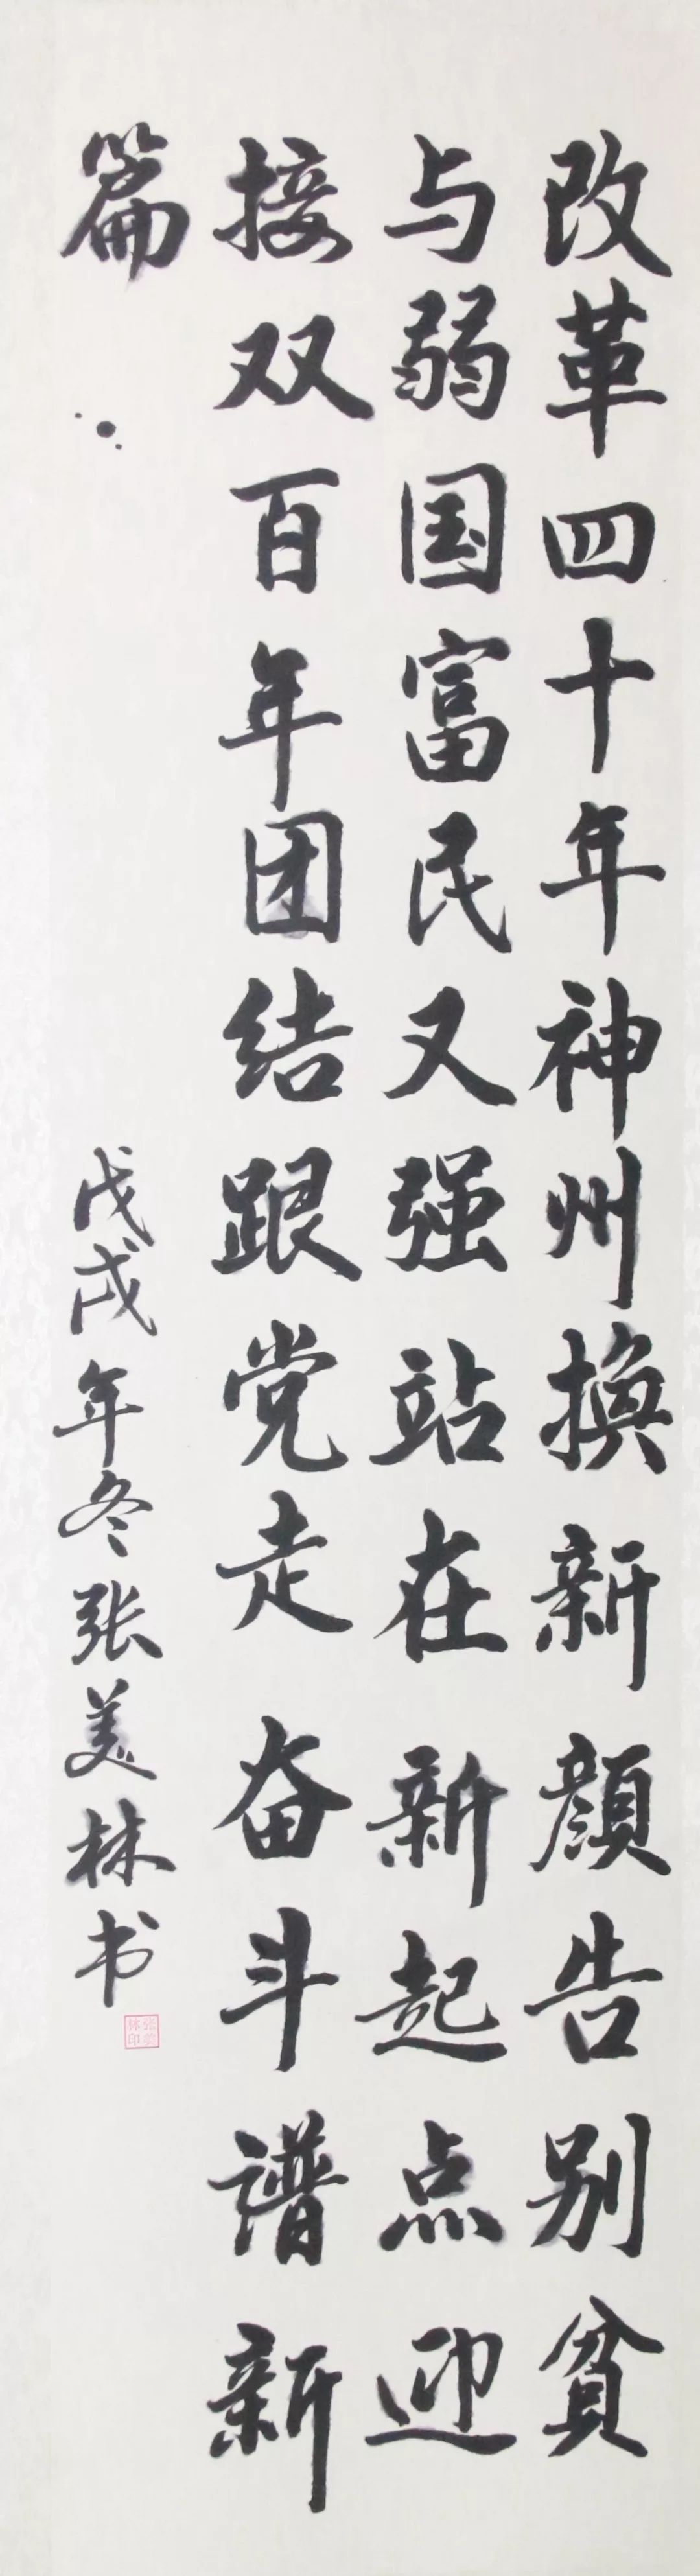 改革四十年神州换新颜告别贫
与弱国富民又强站在新起点迎
接双百年团结跟党走奋斗谱新
篇
戊戌年冬张美林书
张美林印